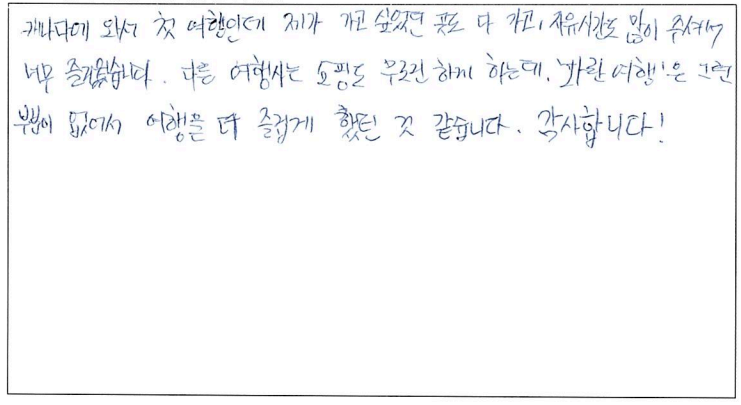 캐나다에 와서 첫 여행인데 제가 가고 싶었던 곳도 다 가고, 자유시간도 많이 주셔서
너무 즐거웠습니다. 다른 여행사는 쇼핑도 무조건 하게 하는데, '파란여행'은 그런
부분이 없어서 여행을 더 즐겁게 했던 것 같습니다. 감사합니다!